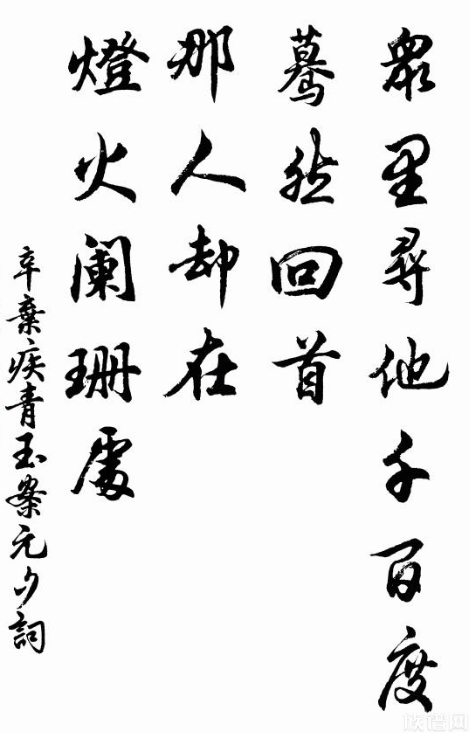 眾里尋他千百度
驀然回首
那人却在
燈火阑珊處
辛棄疾青玉案元夕詞